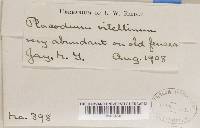 Herbarium of L. W. Riddle
Placodium vitellinum
very abundant on old fences
Jay, N. Y. Aug. 1908
No. 398